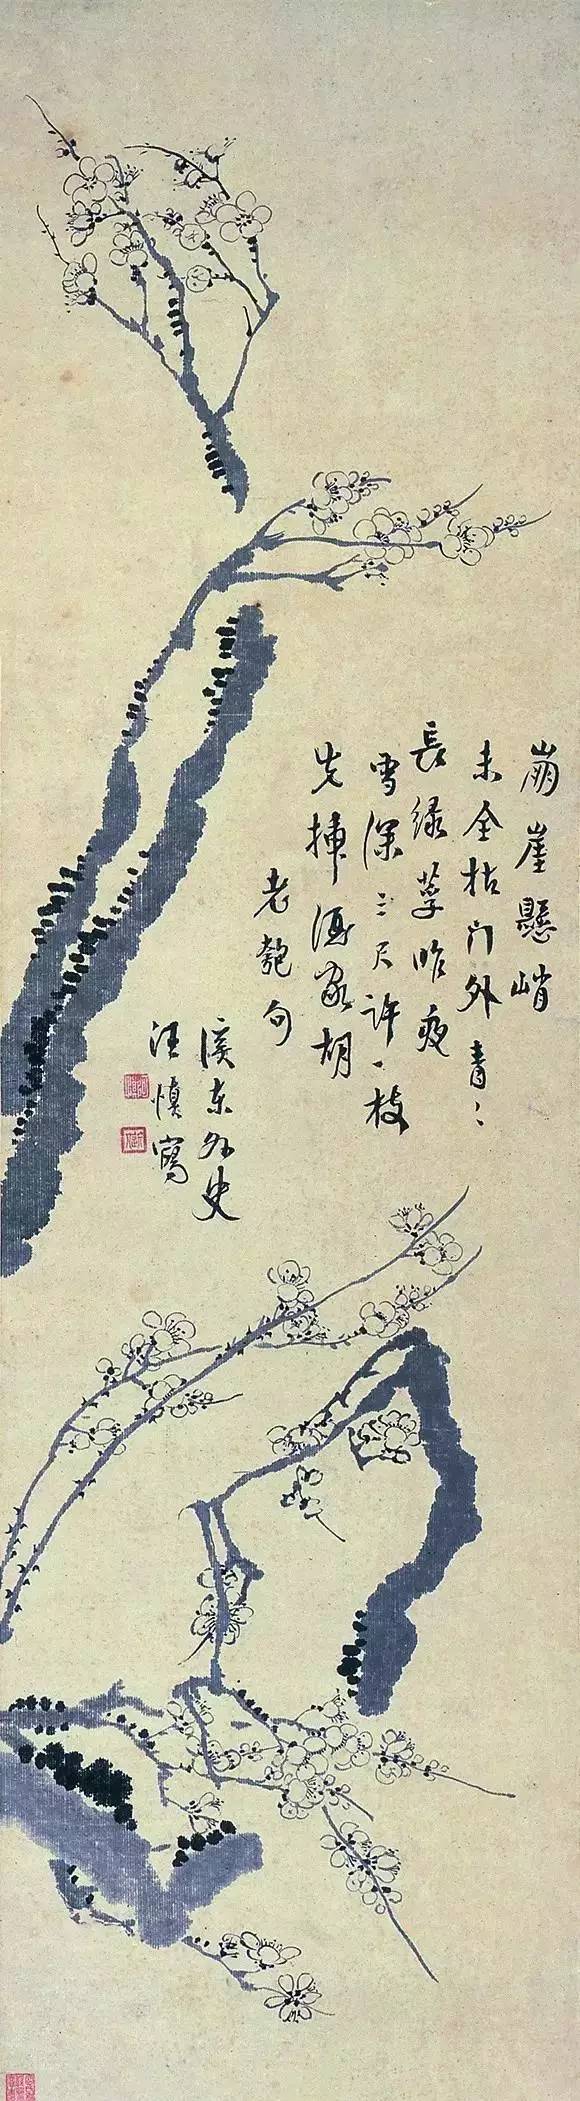 崩崖懸峭
未全枯门外青〻
長緑莩昨夜
雪深三尺許一枝
先揷酒家胡
老匏句
溪东外史
汪慎寫